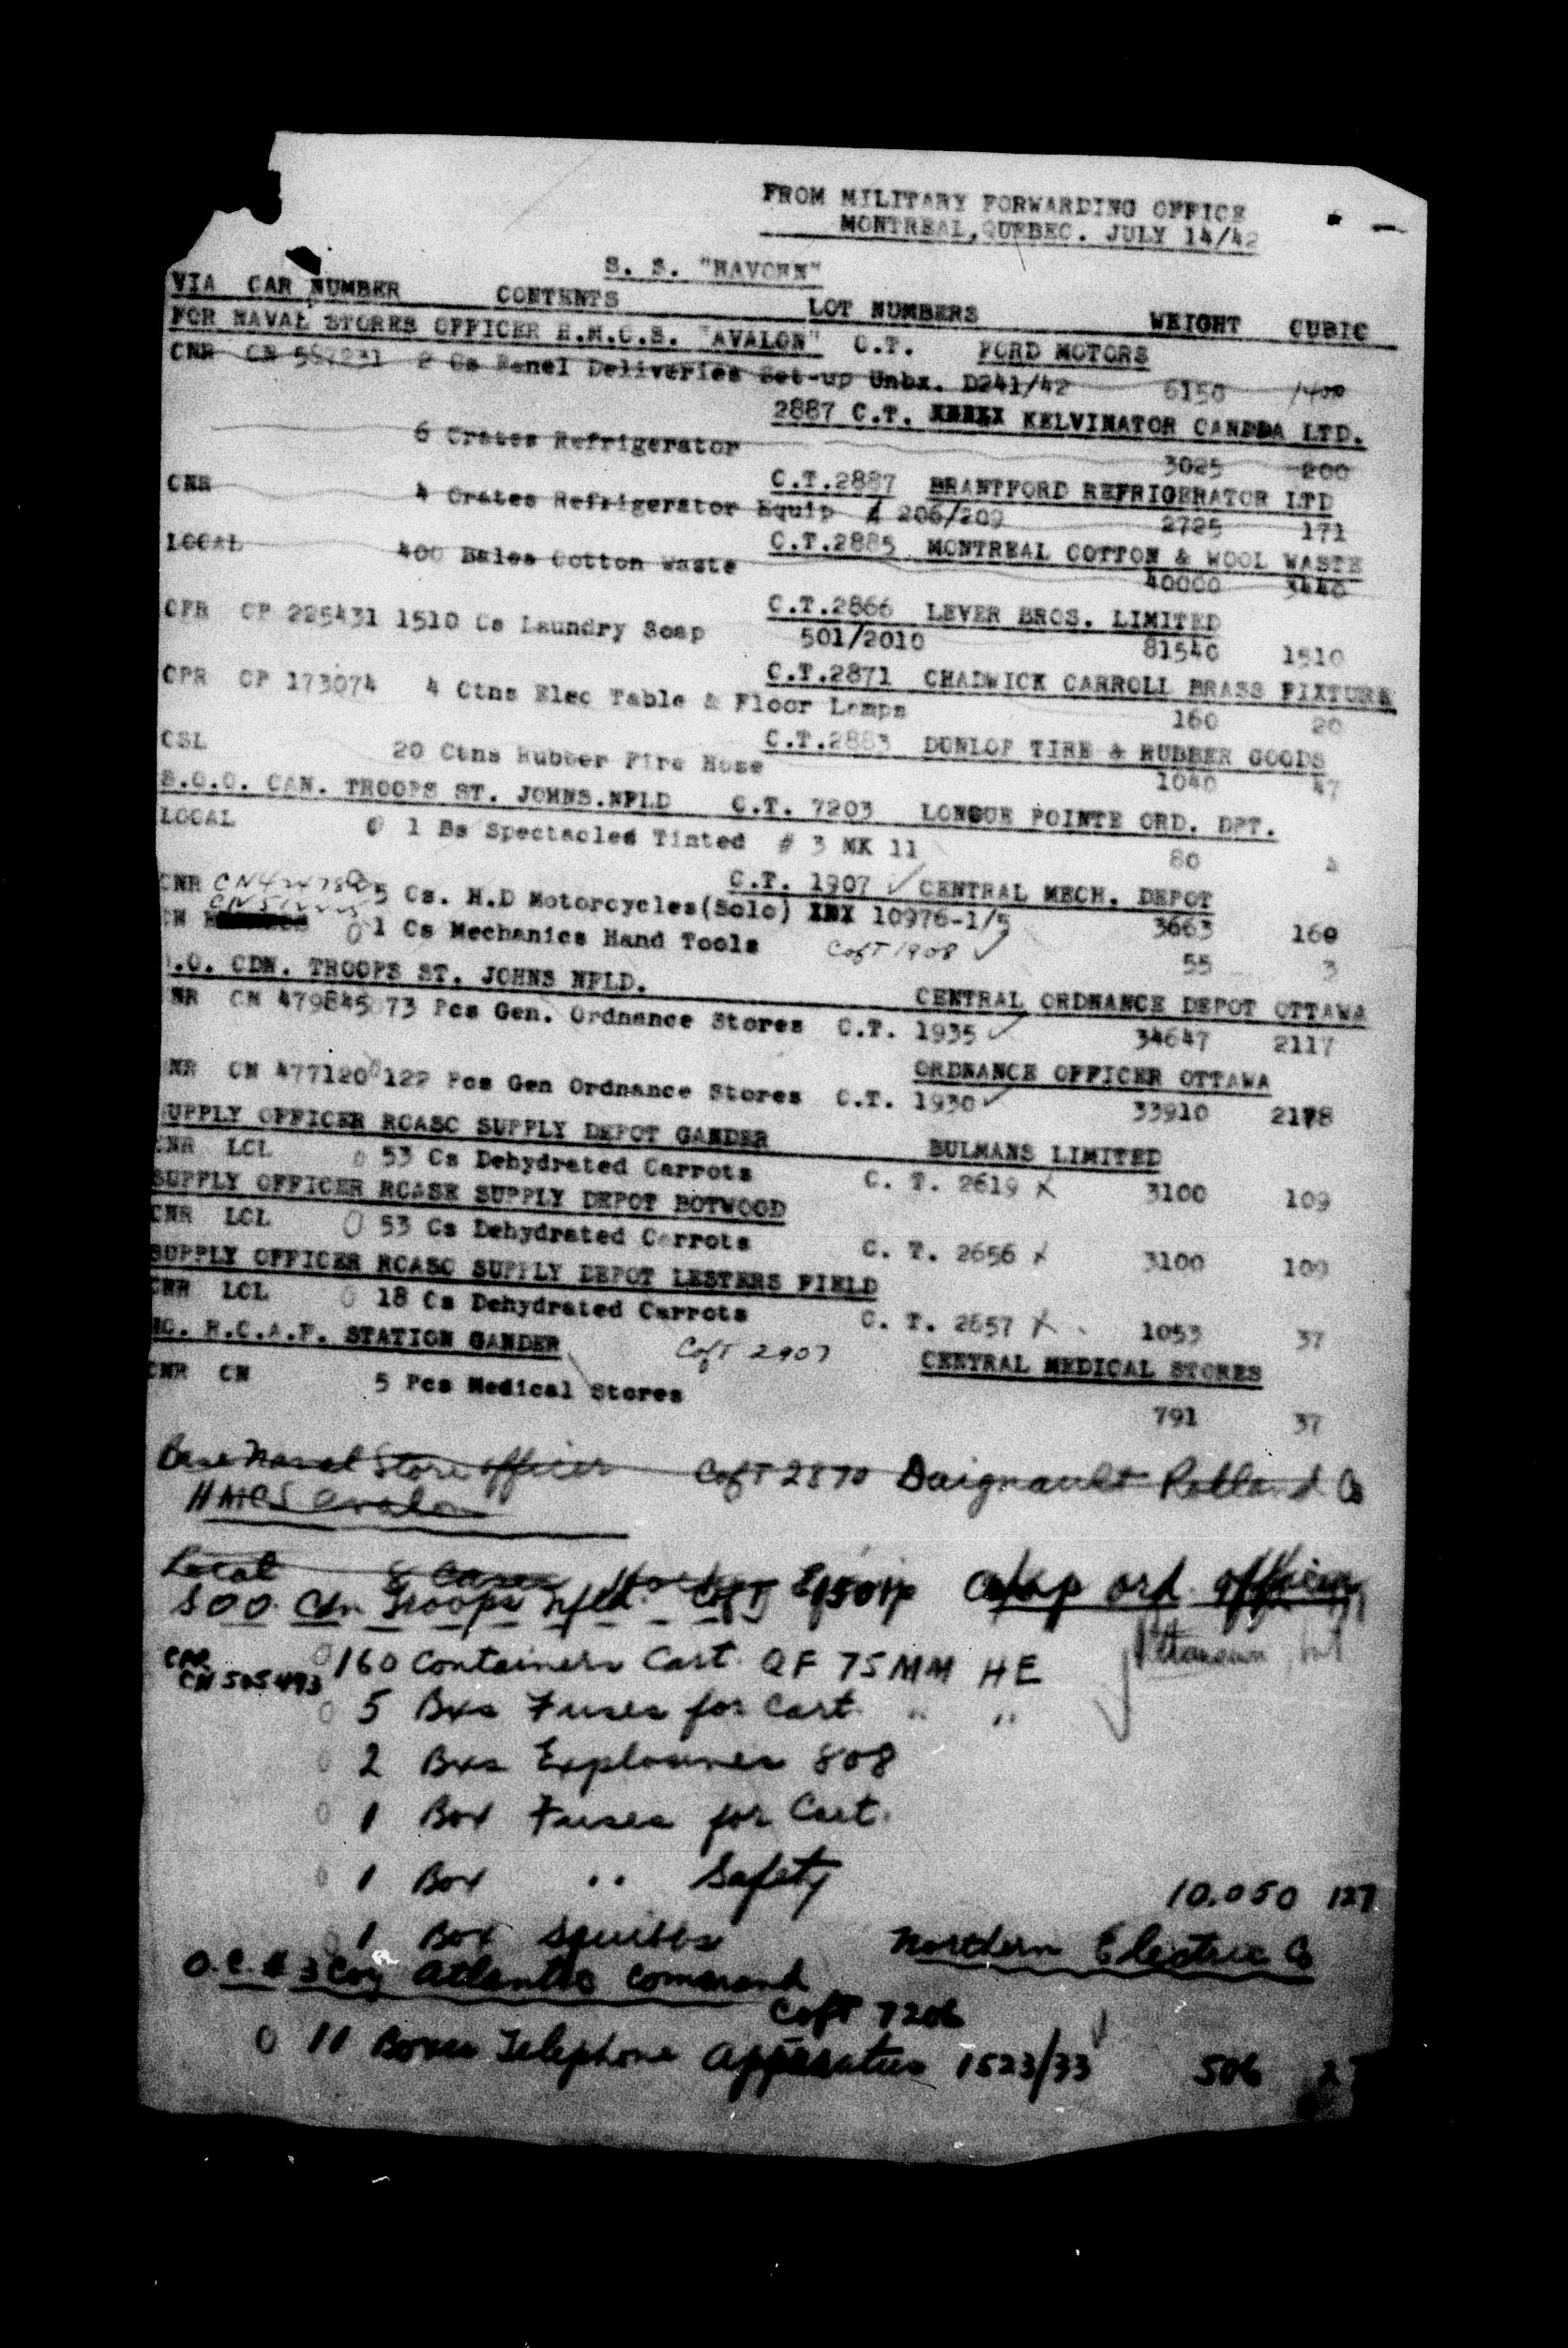 FROM MILITARY FORWARDING OFFICE
MONTREAL, QUEBEC. JULY 14/42
S. S. "HAVORN"
VIA CAR NUMBER CONTENTS LOT NUMBERS WEIGHT CUBIC
FOR NAVAL STORES OFFICER H.M.C.S. "AVALON" C.T. FORD MOTORS
CNR CN 557231 2 Cs Panel Deliveries Set-up Unbx. D241/42 6150 1400
2887 C.T. KELVINATOR CANADA LTD.
6 Crates Refrigerator 3025 200
C.T.2887 BRANTFORD REFRIGERATOR LTD
CNR 4 Crates Refrigerator Equip # 206/209 2725 171
C.T.2885 MONTREAL COTTON & WOOL WASTE
LOCAL 400 Bales Cotton Waste 40000 3440
C.T.2866 LEVER BROS. LIMITED
CPR CP 225431 1510 Cs Laundry Soap 501/2010 81540 1510
C.T.2871 CHADWICK CARROLL BRASS FIXTURE
CPR CP 173074 4 Ctns Elec Table & Floor Lamps 160 20
C.T.2883 DUNLOP TIRE & RUBBER GOODS
CSL 20 Ctns Rubber Fire Hose 1040 47
S.O.O. CAN. TROOPS ST. JOHNS.NFLD C.T. 7203 LONGUE POINTE ORD. DPT.
LOCAL 1 Bs Spectacles Tinted # 3 MK 11 80
C.T. 1907 ✓ CENTRAL MECH. DEPOT
CNR 5 Cs. H.D Motorcycles(Solo) 10976-1/5 3663 160
CN 1 Cs Mechanics Hand Tools CofT 1908 ✓ 55 3
.O. CDN. TROOPS ST. JOHNS NFLD. CENTRAL ORDNANCE DEPOT OTTAWA
NR CN 479845 73 Pcs Gen. Ordnance Stores C.T. 1935 ✓ 34647 2117
ORDNANCE OFFICER OTTAWA
NR CN 477120 122 Pcs Gen Ordnance Stores C.T. 1930 ✓ 33910 2178
SUPPLY OFFICER RCASC SUPPLY DEPOT GANDER BULMANS LIMITED
CNR LCL 53 Cs Dehydrated Carrots C. T. 2619 x 3100 109
SUPPLY OFFICER RCASE SUPPLY DEPOT BOTWOOD
CNR LCL 0 53 Cs Dehydrated Carrots C. T. 2656 x 3100 109
SUPPLY OFFICER RCASC SUPPLY DEPOT LESTERS FIELD
CNR LCL 0 18 Cs Dehydrated Carrots C. T. 2657 x 1053 37
R.C.A.F. STATION GANDER CofT 2907 CENTRAL MEDICAL STORES
CNR CN 5 Pcs Medical Stores 791 37
Base Naval Store officer CofT 2870 Daignault Rolland Co
HMCS Avalon
Local 8 Cases
SOO Cdn Troops Nfld. CofT ord. officer
CNR 0 160 Containers Cart. QF 75MM HE
CN 505493
0 5 Bxs Fuses for Cart " "
0 2 Bxs Explosives 808
0 1 Box Fuses for Cart.
0 1 Box " Safety 10.050 127
1 Box Squibbs Northern Electric Co
O.C. # 3 Coy Atlantic Command
CofT 7206
0 11 Boxes Telephone Apparatus 1523/33 506